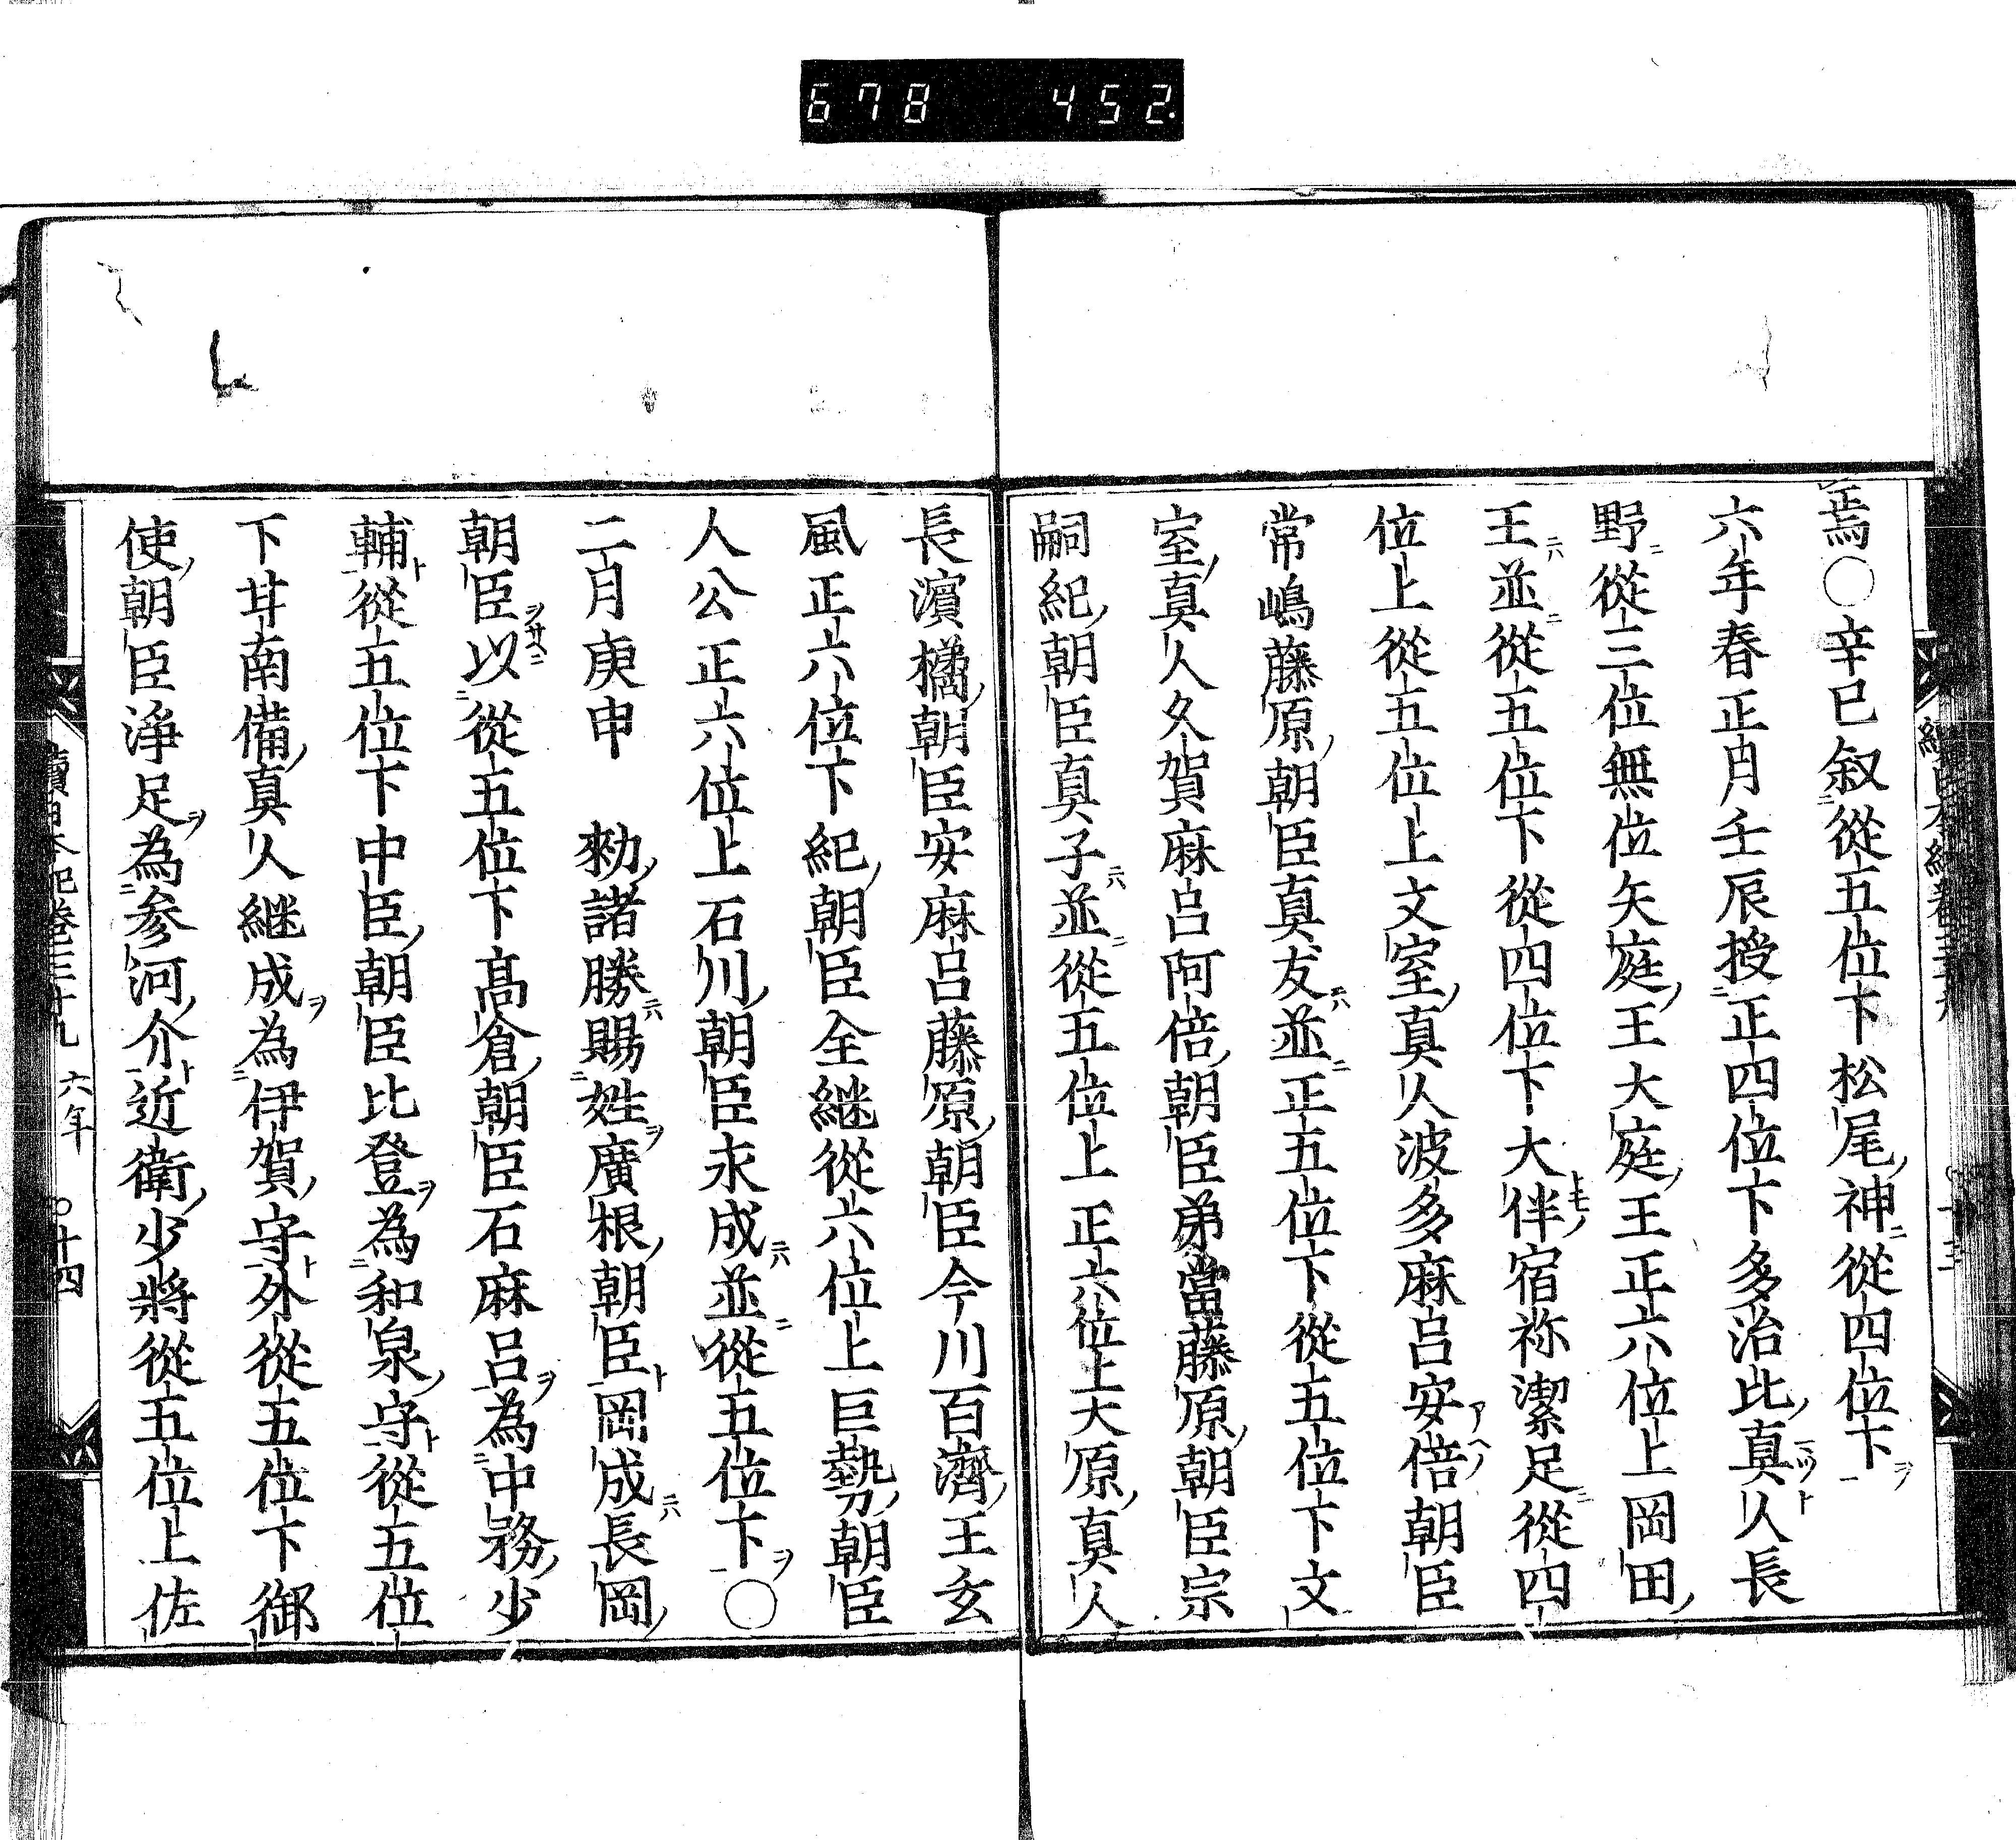 678 452
焉○辛巳叙從五位下松尾神從四位下
六年春正月壬辰授正四位下多治比真人長
野從三位無位矢庭王大庭王正六位上岡田
王並從五位下從四位下大伴宿祢潔足從四
位上從五位上文室真人波多麻呂安倍朝臣
常嶋藤原朝臣真友並正五位下從五位下文
室真人久賀麻呂阿倍朝臣弟當藤原朝臣宗
嗣紀朝臣真子並從五位上正六位上大原真人
長濵橘朝臣安麻呂藤原朝臣今川百濟王玄
風正六位下紀朝臣全継從六位上巨勢朝臣
人公正六位上石川朝臣永成並從五位下○
二月庚申 勑諸勝賜姓廣根朝臣岡成長岡
朝臣以從五位下高倉朝臣石麻呂為中務少
輔從五位下中臣朝臣比登為和泉守從五位
下甘南備真人継成為伊賀守外從五位下御
使朝臣淨足為参河介近衛少將從五位上佐
續日本紀卷三十九 六年 ○十四